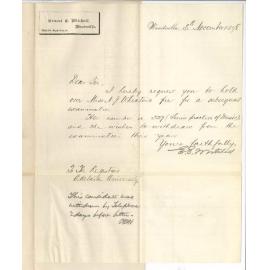 Ernest E. Mitchell
Woodville.
Woodville 5th November 1898
Dear Sir,
I hereby request you to hold
over Miss fee for a subsequent
examination
Her number is 529 (Junior of Music)
and she wishes to withdraw from the
examination this year
Yours faithfully,
E. E. Mitchell
To The Registrar
Adelaide University
This candidate was
withdrawn by telephone
days before letter.